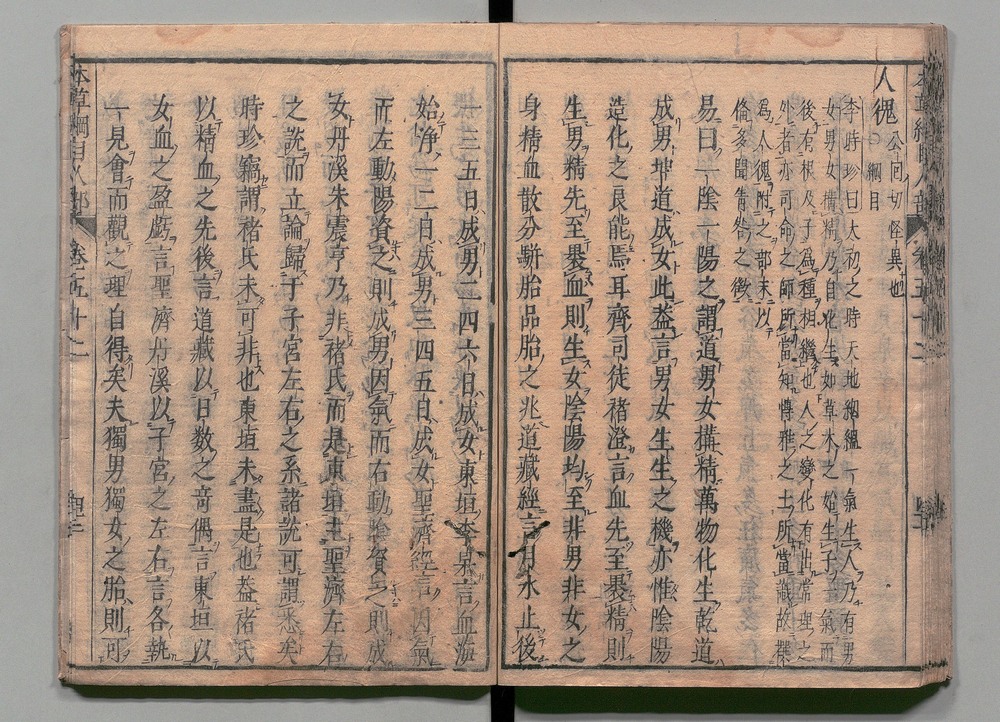 人傀 公回切怪異也
綱目
李時珍曰太初之時天地絪縕一氣生人乃有男
女男女構精乃自化生如草木之始生子一氣而
後有根及子爲種相繼也人之變化有出常理之
外者亦司命之師所當知博雅之士所當識故撰
爲人傀附之部末以
備多聞眚咎之徵
易曰一陰一陽之謂道男女搆精萬物化生乾道
成男坤道成女此蓋言男女生生之機亦惟陰陽
造化之良能焉耳齊司徒褚澄言血先至褁精則
生男精先至褁血則生女陰陽均至非男非女之
身精血散分駢胎品胎之兆道藏經言月水止後
一三五日成男二四六日成女東垣李杲言血海
始淨一二日成男三四五日成女聖濟經言因氣
而左動陽資之則成男因氣而右動陰資之則成
女丹溪朱震亨乃非褚氏而是東垣主聖濟左右
之說而立論歸于子宮左右之系諸說可謂悉矣
時珍竊謂褚氏未可非也東垣未盡是也蓋褚氏
以精血之先後言道藏以日数之竒偶言東垣以
女血之盈虧言聖濟丹溪以子宮之左右言各執
一見會而觀之理自得矣夫獨男獨女之胎則可
本草綱目人部
卷五十二